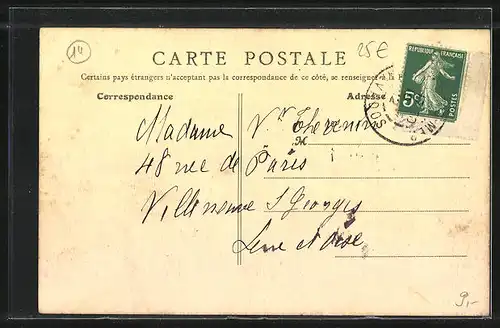 14
25 E
CARTE POSTALE
Certains pays étrangers n'acceptant pas la correspondance de ce côté, se renseigner à la
RÉPUBLIQUE FRANÇAISE
5c
POSTES
Correspondance
Adresse
Madame Vve Thevenin
M
48 rue de Paris
Villeneuve St Georges
Seine et Oise
9,-